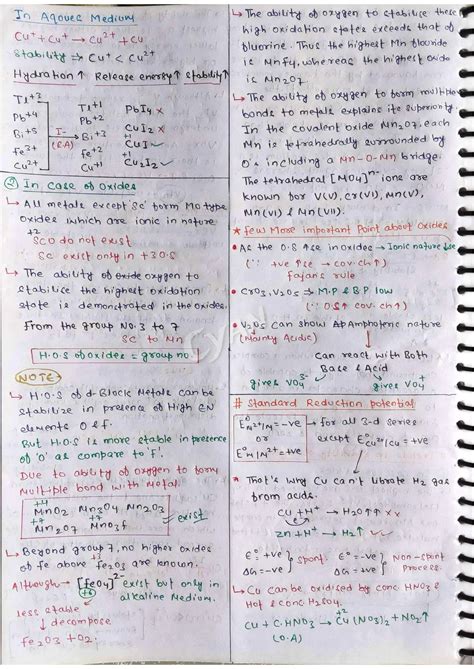 In Aqoues Medium
Cu⁺ + Cu⁺ → Cu²⁺ + Cu
Stability ⟹ Cu⁺ < Cu²⁺
Hydration↑ Release energy↑ stability↑
Tl⁺³ Tl⁺¹ PbI₄ ×
Pb⁺⁴ Pb⁺² CuI₂ ×
Bi⁺⁵ I⁻ Bi⁺³ CuI ✓
Fe³⁺ (R.A) Fe⁺² +1
Cu²⁺ Cu⁺¹ Cu₂I₂ ✓
② In case of oxides
↳ All metals except 'Sc' form MO type
oxides which are ionic in nature
+2
ScO do not exist
∵ Sc exist only in +3 O.S
↳ The ability of oxygen to
stabilise the highest oxidation
state is demonstrated in the oxides.
From the group No. 3 to 7
Sc to Mn
H.O.S of oxides = group no.
NOTE
↳ H.O.S of d-Block Metals can be
stabilize in presence of High EN
elements O & F.
But H.O.S is more stable in presence
of 'O' as compare to 'F'.
Due to ability of oxygen to form
Multiple bond with Metal.
+4
MnO₂ Mn₃O₄ Mn₂O₃
+7 +3
Mn₂O₇ MnO₃F exist
↳ Beyond group 7, no higher oxides
of Fe above Fe₂O₃ are known.
Although → [FeO₄]²⁻ exist but only in
+6 alkaline Medium.
less stable
↓ decompose
Fe₂O₃ + O₂.
↳ The ability of oxygen to stabilise these
high oxidation states exceeds that of
fluorine. Thus the highest Mn flouride
is MnF₄, whereas the highest oxide
is Mn₂O₇.
↳ The ability of oxygen to form multiple
bonds to metals explains its superiority
In the covalent oxide Mn₂O₇, each
Mn is tetrahedrally surrounded by
O's including a Mn-O-Mn bridge.
The tetrahedral [MO₄]ⁿ⁻ ions are
known for V(V), Cr(VI), Mn(V),
Mn(VI) & Mn(VII).
* few More important Point about Oxides
• As the O.S ↑se in oxides → Ionic nature ↓se
(∵ +ve ↑se → cov. ch↑)
fajans rule
• CrO₃, V₂O₅ ⟹ M.P & B.P low
(∵ O.S↑ cov. ch↑)
• V₂O₅ can show Amphoteric nature
(Mainly Acidic)
Can react with Both
Base & Acid
gives VO₄³⁻ gives VO₄⁺
# Standard Reduction potential
E°M²⁺/M = -ve → for all 3-d series
or except E°Cu²⁺/Cu = +ve
E°M/M²⁺ = +ve
* That's why Cu can't librate H₂ gas
from acids.
Cu + H⁺ → H₂↑ ××
Zn + H⁺ → H₂↑ ✓
E° = +ve } spont. E° = -ve } Non-spont
ΔG = -ve ΔG = +ve Process.
↳ Cu can be oxidised by conc. HNO₃ &
Hot & conc. H₂SO₄.
+2
Cu + C.HNO₃ → Cu(NO₃)₂ + NO₂↑
(O.A)